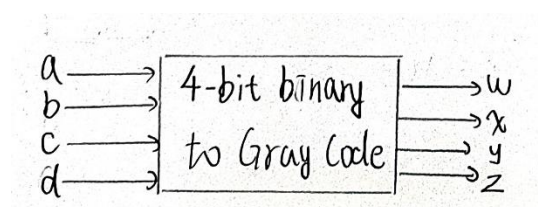 a
b
c
d
4-bit binary
to Gray Code
w
x
y
z